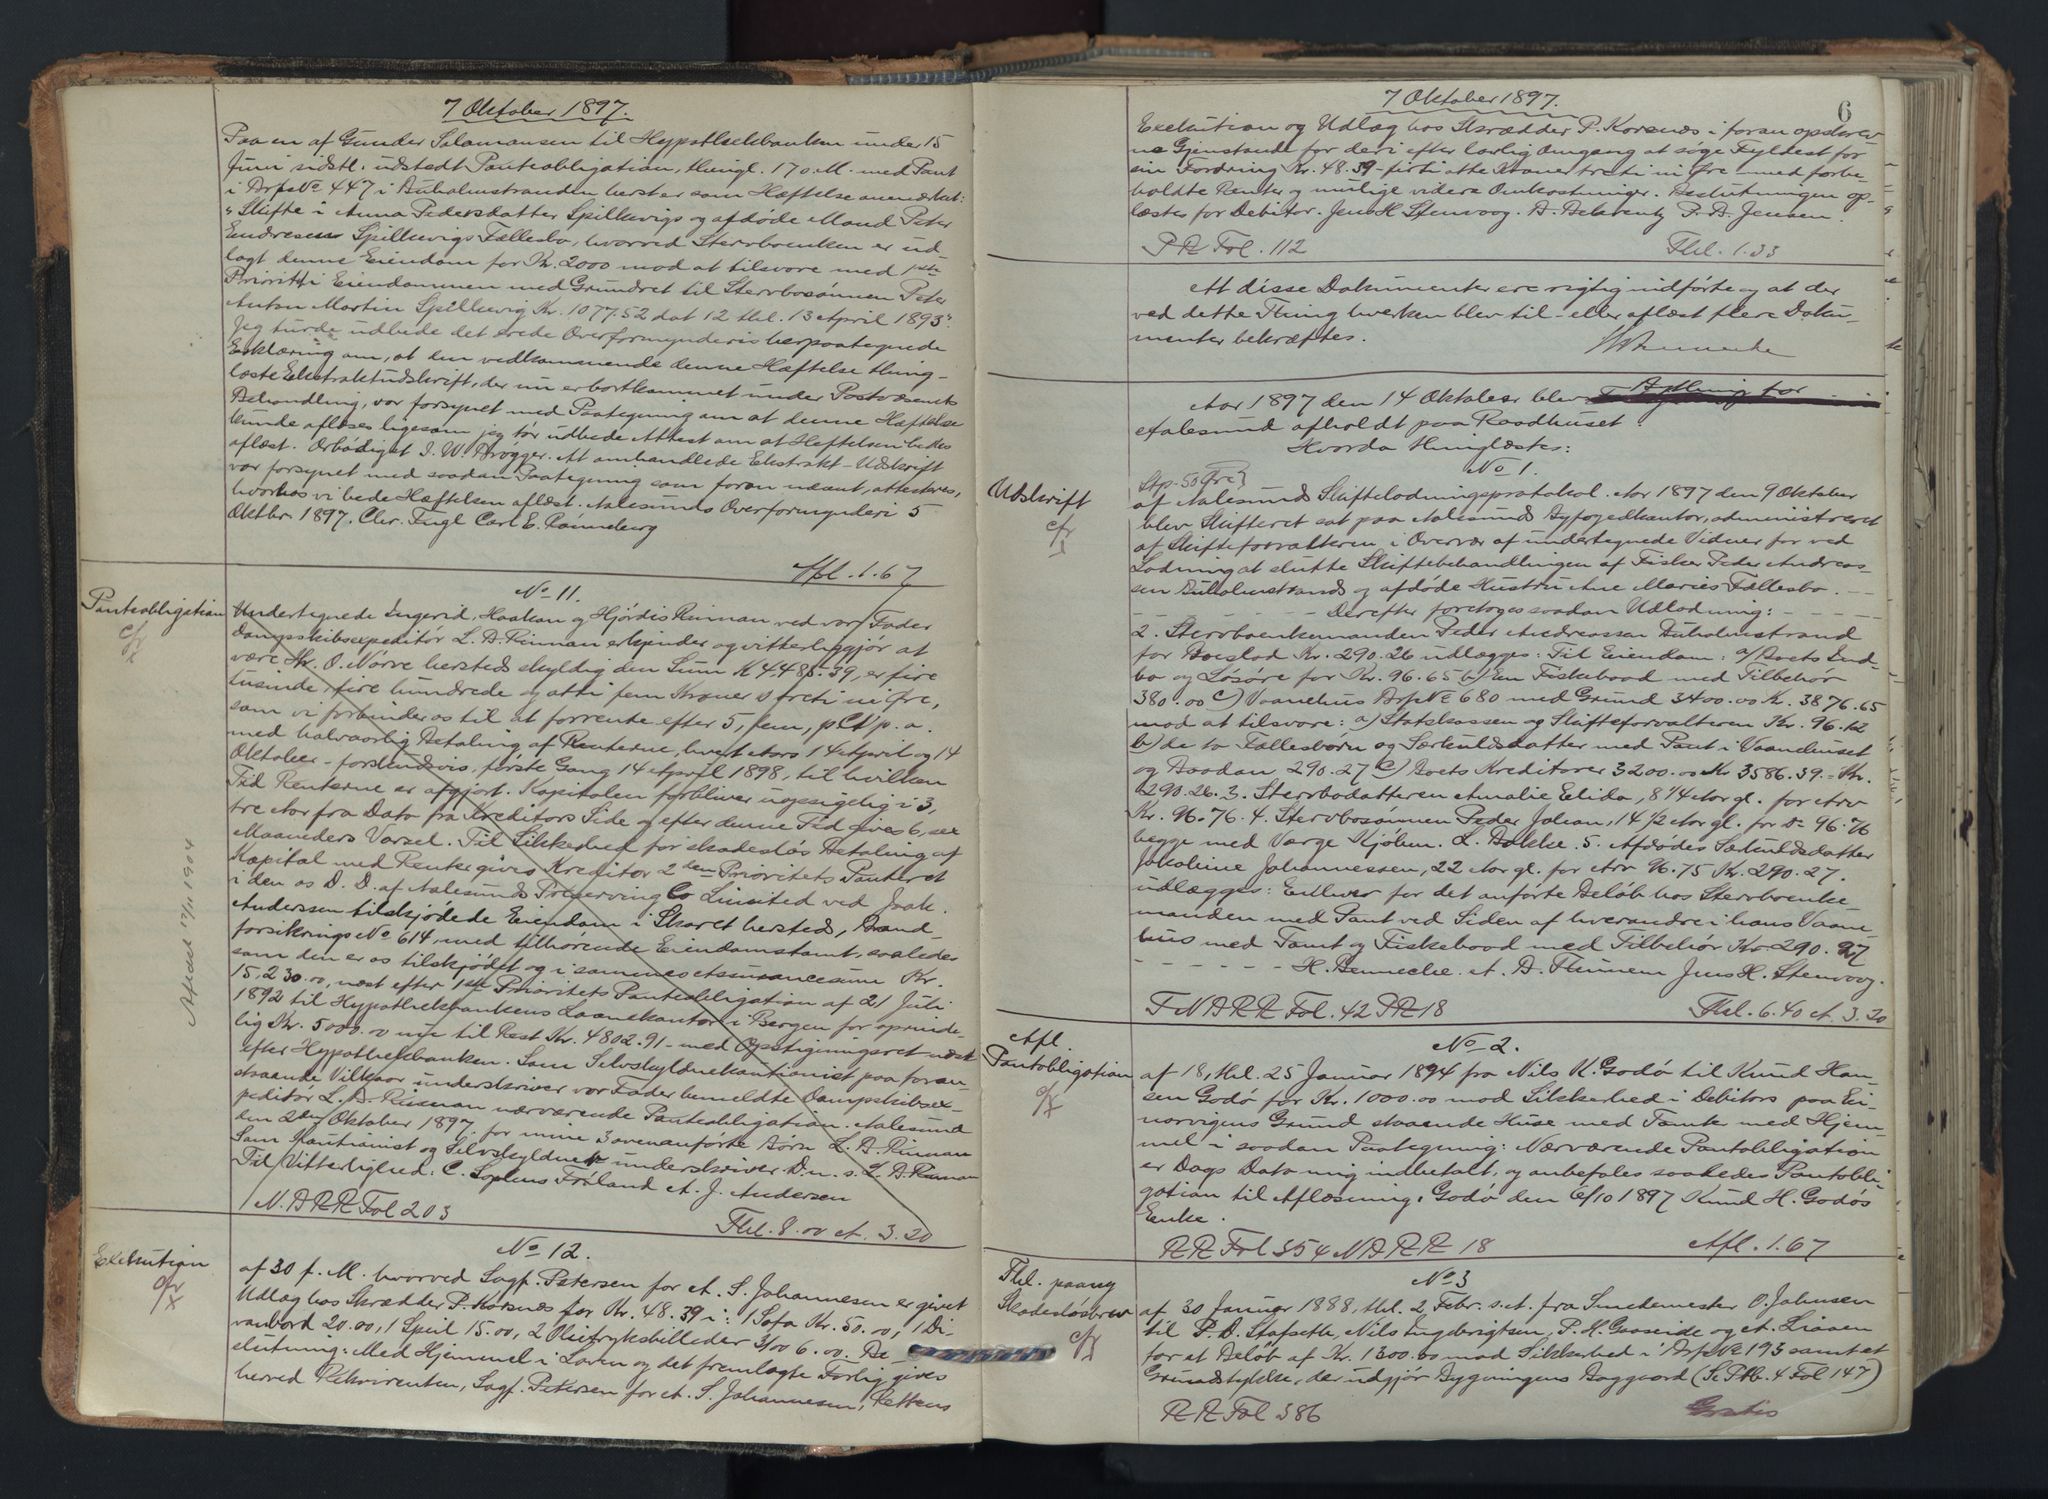 7 Oktober 1897.
Paa en af Gunder Salamonsen til Hypothekbanken under 15
Juni sidstl. udstedt Panteobligation, thingl. 17 o. M. med Pant
i Brfs No 447 i Buholmstranden herst er som Hæftelse anmærket:
"Skifte i Anna Pedersdatter Spilkevigs og afdøde Mand Peter
Endresens Spilkevigs Fællesbo, hvorved Stervboenken er ud-
lagt denne Eiendom for Kr. 2000 mod at tilsvare med 1ste
Prioritet i Eiendommen med Grundret til Stervbosønnen Peter
Anton Martin Spilkevig Kr. 1077.52 dat 12 thl. 13 April 1893".
Jeg turde udbede det ærede Overformynderis herpaategnede
Erklæring om, at den vedkommende denne Hæftelse thing-
læste Ekstraktudskrift, der nu er bortkommet under Postvæsenets
Behandling, var forsynet med Paategning om at denne Hæftelse
kunde aflæses ligesom jeg tør udbede Attest om at Heftelsen bedes
aflæst. Ærbødigst I. W. Brøgger. At omhandlede Ekstrakt-Udskrift
var forsynet med saadan Paategning som foran nævnt, attesteres,
hvorhos vi bede Hæftelsen aflæst. Aalesunds Overformynderi 5
Oktbr 1897. Chr. Fugl Carl E. Rønneberg
Afl. 1.67
Panteobligation
No 11.
Undertegnede Ingerid, Haakon og Hjørdis Rinnan ved vor Fader
Dampskibsexpeditør L. A. Rinnan erkjender og vitterliggjør at
være Hr. O. Nørve hersteds skyldig den Sum K 4485.39, er fire
tusinde, fire hundrede og otti fem Kroner 39 treti ni Øre,
som vi forbinder os til at forrente efter 5, fem, pCt p. a.
med halvaarlig Betaling af Renterne, hvert Aars 14 April og 14
Oktober - forskudsvis, første Gang 14 April 1898, til hvilken
Tid Renterne er afgjort. Kapitalen forbliver uopsigelig i 3,
tre Aar fra Dato fra Kreditors Side og efter denne Tid gives 6, sex
Maaneders Varsel. Til Sikkerhed for skadesløs Betaling af
Kapital med Renter gives Kreditor 2den Prioritets Panteret
i den os D. D. af Aalesunds Preserving Co Limited ved Joak.
Anderssen tilskjødede Eiendom i Skaret hersteds, Brand-
forsikrings No 614, med tilhørende Eiendomstomt, saaledes
som den er os tilskjødet og i sammes Assurancesum Kr.
15,230.00, næst efter 1ste Prioritets Panteobligation af 21 Juli
1892 til Hypothekbankens Laanekontor i Bergen for oprinde-
lig Kr. 5000.00 nu til Rest Kr. 4802.91 - med Opstigningsret næst
efter Hypothekbanken. Som Selvskyldnerkautionist paa foran-
staaende Vilkaar underskriver vor Fader bemeldte Dampskibsex-
peditør L. A. Rinnan nærværende Panteobligation. Aalesund
den 2den Oktober 1897. for mine 3 ovenanførte Børn L. A. Rinnan
Som Kautionist og Selvskyldner underskriver D. u. s. L. A. Rinnan
Til Vitterlighed: C. Sophus Frøland A. J. Andersen
N. B R R Fol 203
Thl. 8.00 A. 3.20
Aflæst 17/11 1904
Exekution
No 12.
af 30 f. M. hvorved Sagf. Petersen for A. S. Johannesen er givet
Udlæg hos Skrædder P. Korsnes for Kr. 48.39 i: 1 Sofa Kr. 50.00, 1 Di-
vanbord 20.00, 1 Speil 15.00, 2 Olietryksbilleder 3/00 6.00. Be-
slutning: Med Hjemmel i Loven og det fremlagte Forlig gives
herved Rekvirenten, Sagf. Petersen for A. S. Johannesen, Rettens
7 Oktober 1897.
6
Exekution og Udlæg hos Skrædder P. Korsnes i foran opskrev-
ne Gjenstande for deri efter lovlig Omgang at søge Fyldest for
sin Fordring Kr. 48.39 - førti otte Kroner treti ni Øre - med forbe-
holdte Renter og mulige videre Omkostninger. Beslutningen op-
læstes for Debitor. Jens H. Stenvaag. P. B. Jensen.
P R Fol. 112
Thl. 1.33
At disse Dokumenter ere rigtig indførte og at der
ved dette Thing hverken blev til- eller aflæst flere Doku-
menter bekræftes.
Aar 1897 den 14 Oktober blev Bything for
Aalesund afholdt paa Raadhuset
Hvorda thinglæstes:
No 1.
Stp. 50 Øre
Udskrift
af Aalesunds Skiftelodningsprotokol. Aar 1897 den 9 Oktober
blev Skifteret sat paa Aalesunds Byfogedkontor, administreret
af Skifteforvalteren i Overvær af undertegnede Vidner for ved
Lodning at slutte Skiftebehandlingen af Fisker Peder Andreas-
sen Buholmstrands og afdøde Hustru Ane Maries Fællesbo. --
------ Derefter foretoges saadan Udlodning: ----
2. Stervboenkemanden Peder Andreassen Buholmstrand
for Boeslod Kr. 290.26 udlægges: Til Eiendom: a) Boets Ind-
bo og Løsøre for Kr. 96.65 b) En Fiskebaad med Tilbehør
380.00 c) Vaanehus Brfs No 680 med Grund 3400.00 K. 3876.65
mod at tilsvare: a) Statskassen og Skifteforvalteren Kr. 96.12
b) de to Fællesbørn og Særkuldsdatter med Pant i Vaanehuset
og Baaden 290.27 c) Boets Kreditorer 3200.00 Kr 3586.39. = Kr.
290.26. 3. Stervbodatteren Amalie Elida, 8 1/4 Aar gl. for Arv
Kr. 96.76. 4. Stervbosønnen Peder Johan, 14 1/2 Aar gl. for do 96.76
begge med Værge Kjøbm. L. Bakke. 5. Afdødes Særkuldsdatter
Jakobine Johannessen, 22 Aar gl. for Arv 96.75 K. 290.27.
udlægges: Enhver for det anførte Beløb hos Stervboenke-
manden med Pant ved Siden af hverandre i hans Vaane-
hus med Tomt og Fiskebaad med Tilbehør Kr. 290.27
------ H. Bennecke. A. B. Thunem Jens H. Stenvaag.
F N B R R Fol. 42 P R 18
Thl. 6.40 A. 3.20
Afl.
Pantobligation
No 2.
af 18, thl. 25 Januar 1894 fra Nils K. Godø til Knud Han-
sen Godø for Kr. 1000.00 mod Sikkerhed i Debitors paa Ei-
norvigens Grund staaende Huse med Tomter med Hjem-
mel i saadan Paategning: Nærværende Pantobligation
er Dags Dato mig indbetalt, og anbefales saaledes Pantobli-
gation til Aflæsning. Godø den 6/10 1897 Knud H. Godøs
Enke.
R R Fol 354 N B R R 18
Afl. 1.67
Thl. paany
Skadesløsbrev
No 3
af 30 Januar 1888, thl. 2 Febr. s. A. fra Smedemester O. Johnsen
til P. D. Stafseth, Nils Ingebrigtsen, P. H. Gaaseide og A. Liaaen
for et Beløb af Kr. 1300.00 mod Sikkerhed i Brfs No 193 samt et
Grundstykke, der udgjør Bygningens Baggaard (Se Ptb. 4 Fol 147)
R R Fol 386
Gratis